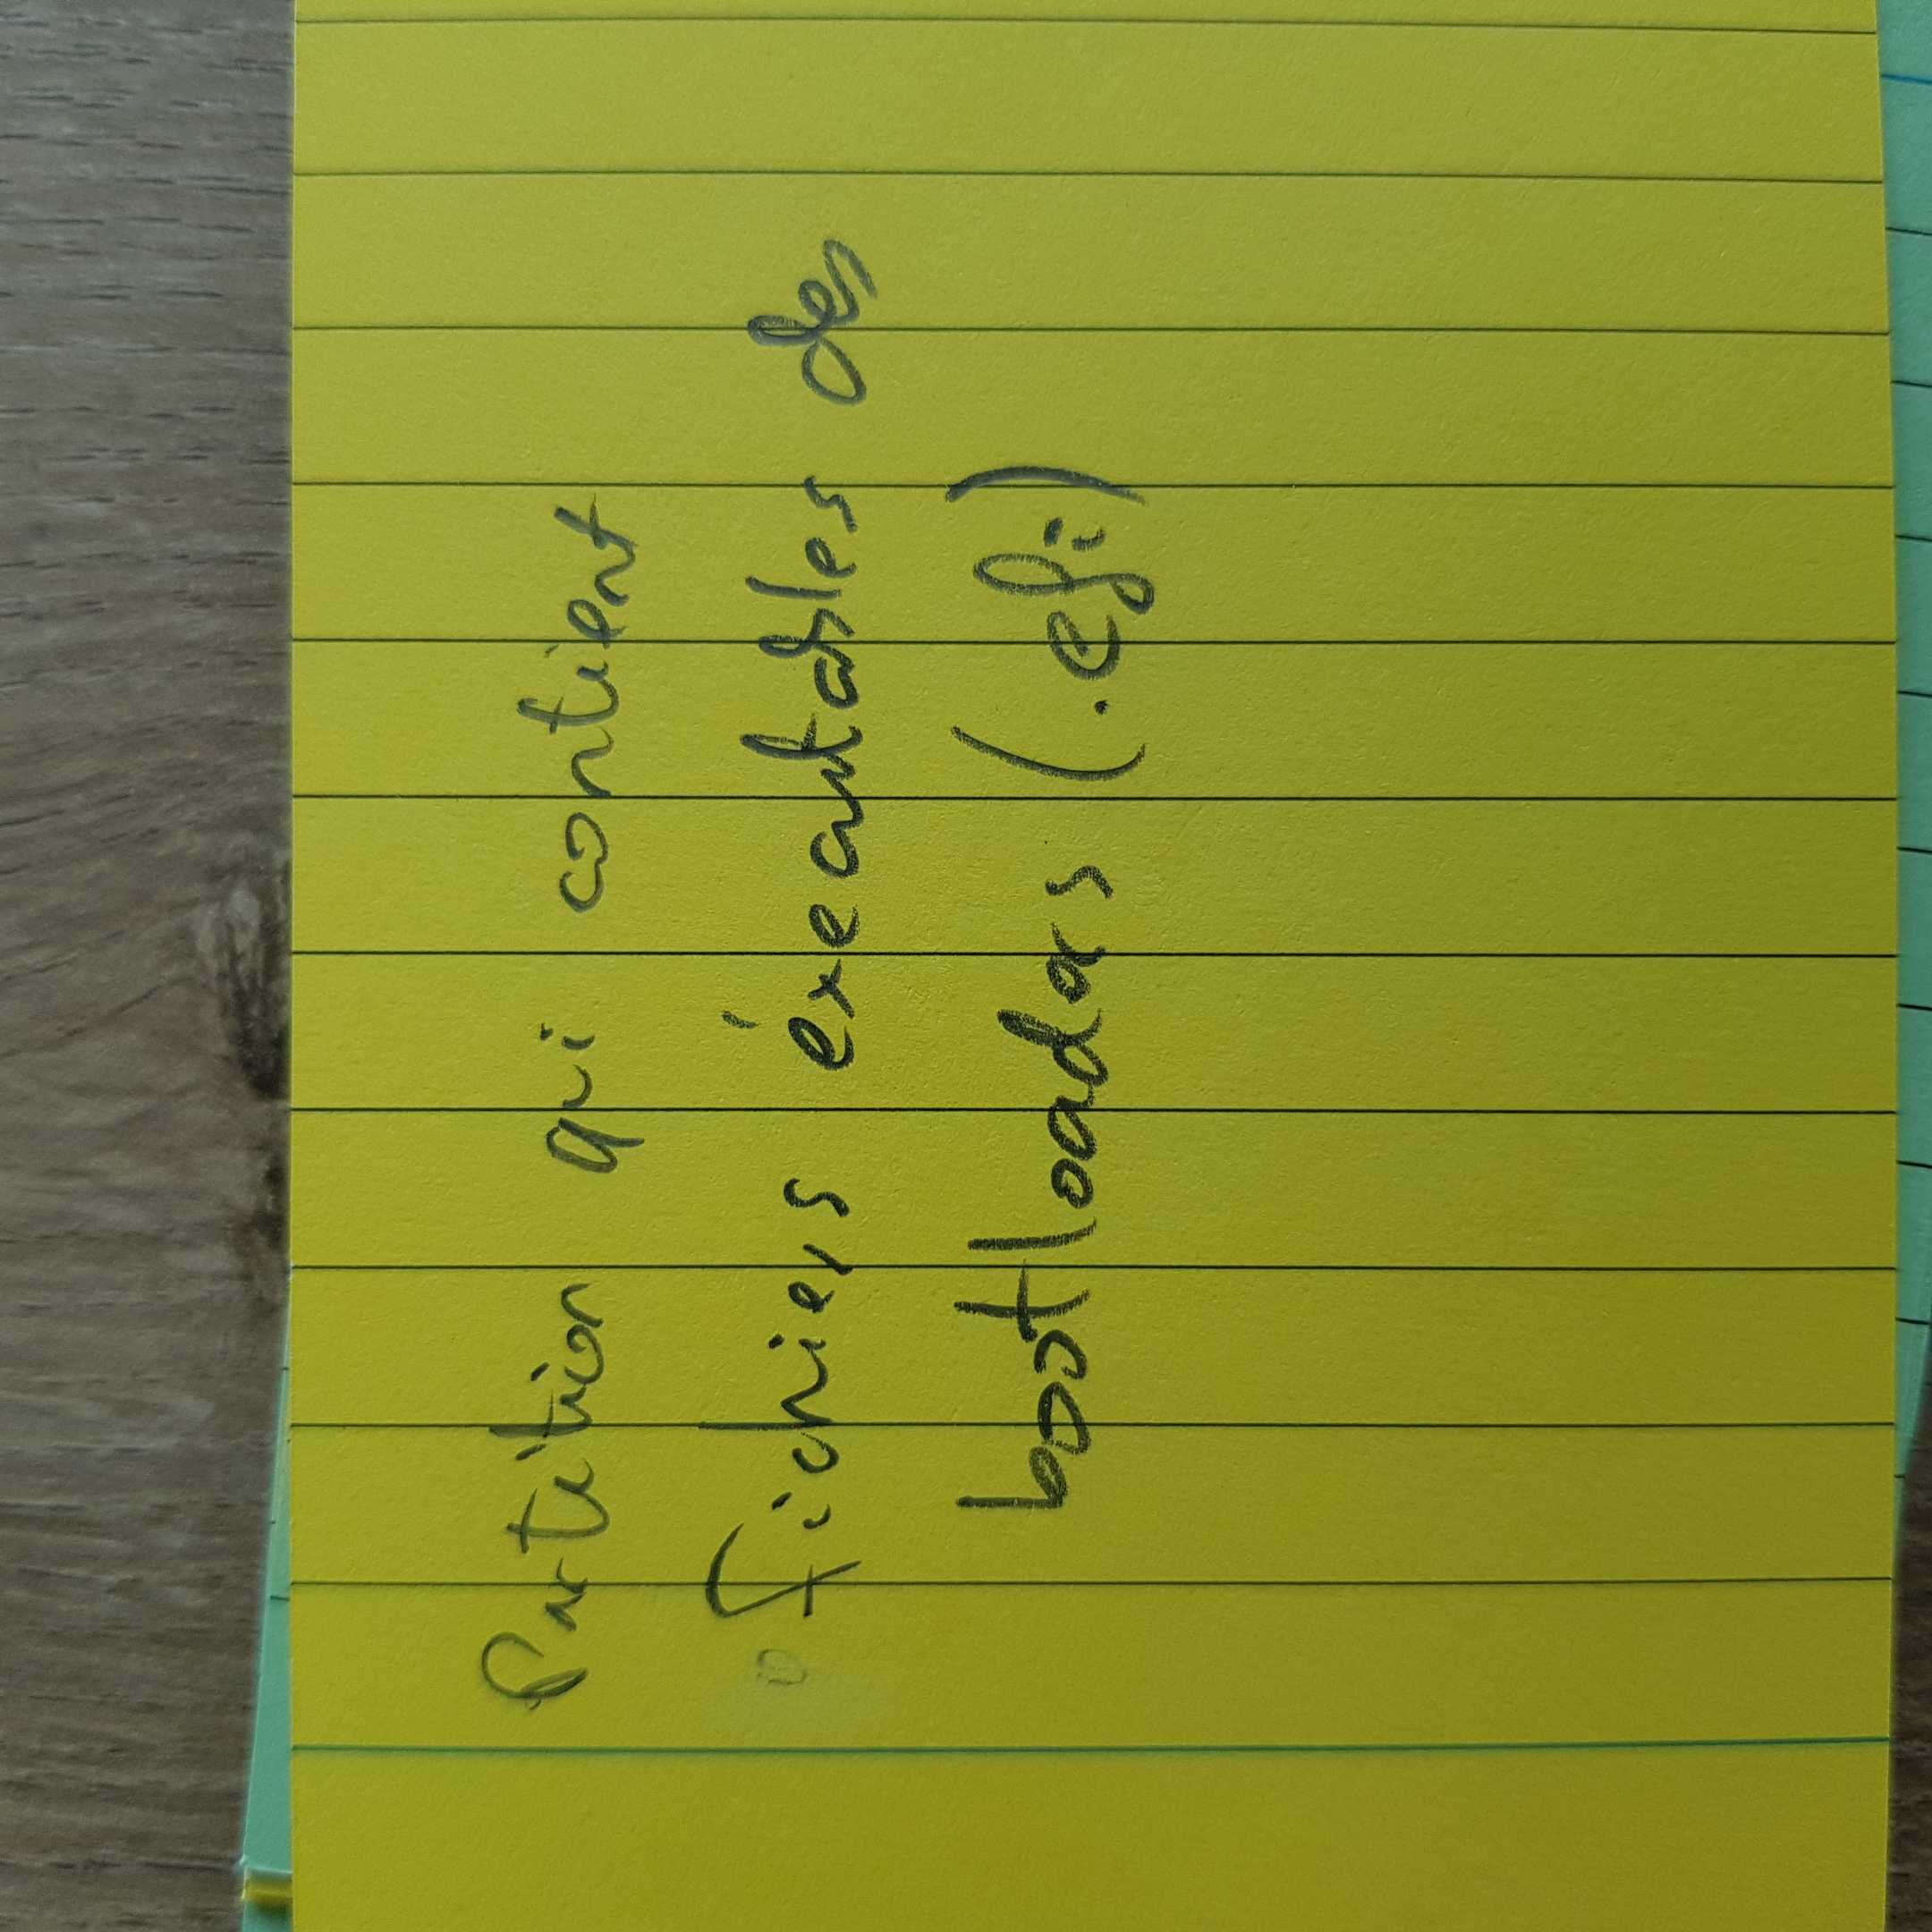 Partition qui contient
fichiers éxecutables des
bootloaders (.efi)